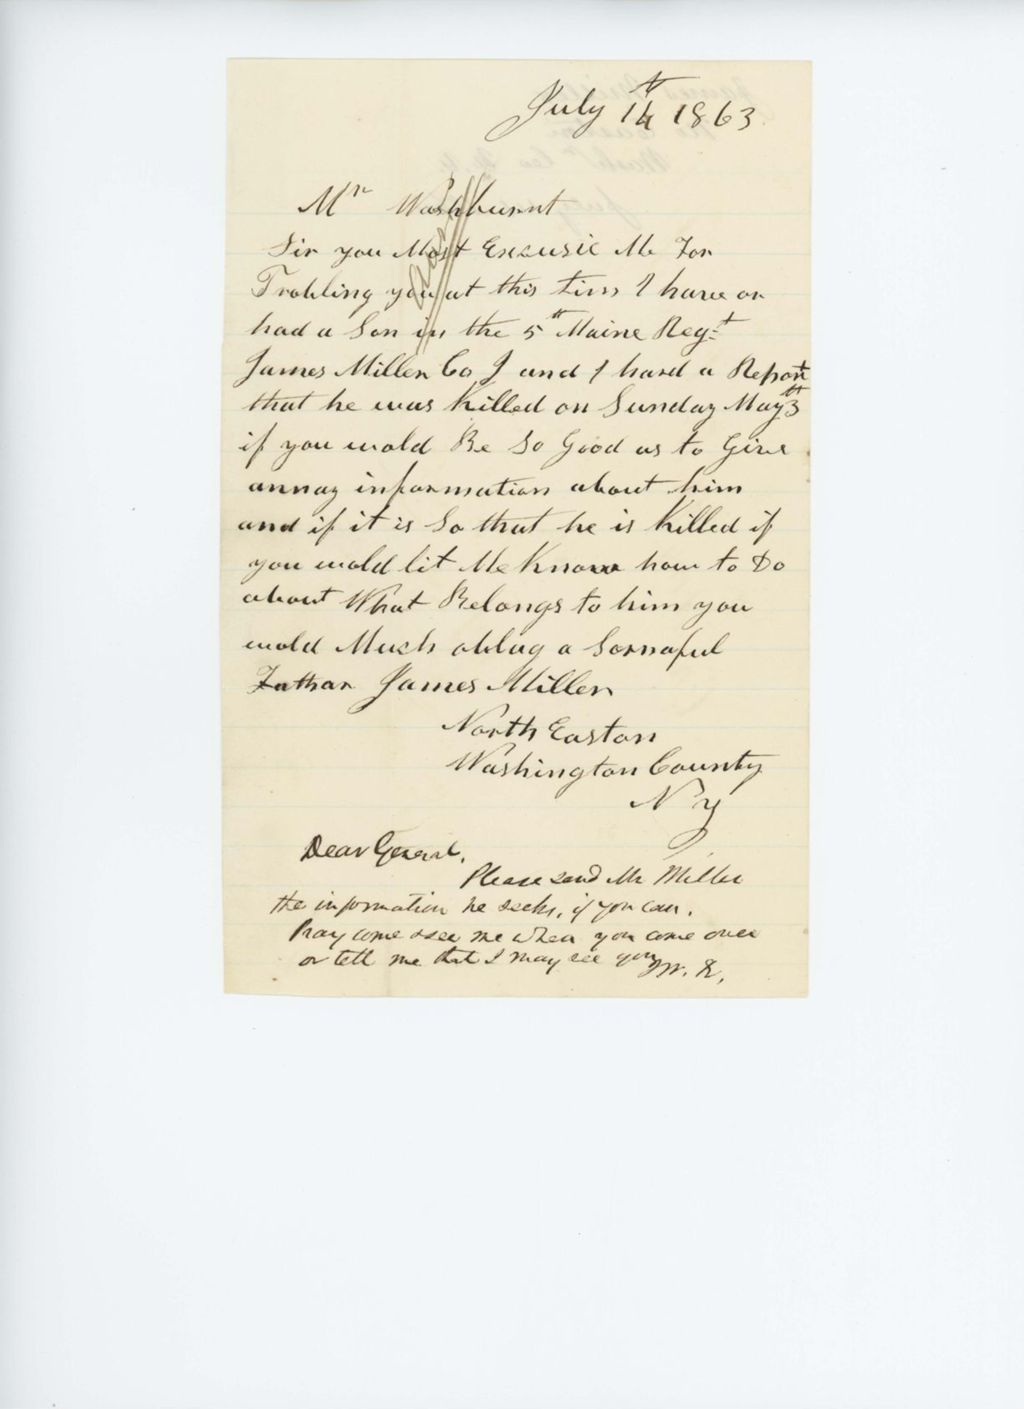 July 14th 1863
Mr Washburnt
Sir you Most Excusie Me For
Trobling you at this time I have or
had a Son in the 5th Maine Regt
James Miller Co I and I hard a Report
that he was Killed on Sunday May 3th
if you wold Be So Good as to Give
annay information about him
and if it is So that he is Killed if
you wold lit Me Know how to Do
about What Belongs to him you
wold Much oblug a Sornoful
Fathar James Miller
North Easton
Washington County
N y
Dear General,
Please send Mr Miller
the information he seeks, if you can.
Pray come & see me when you come over
or tell me that I may see you